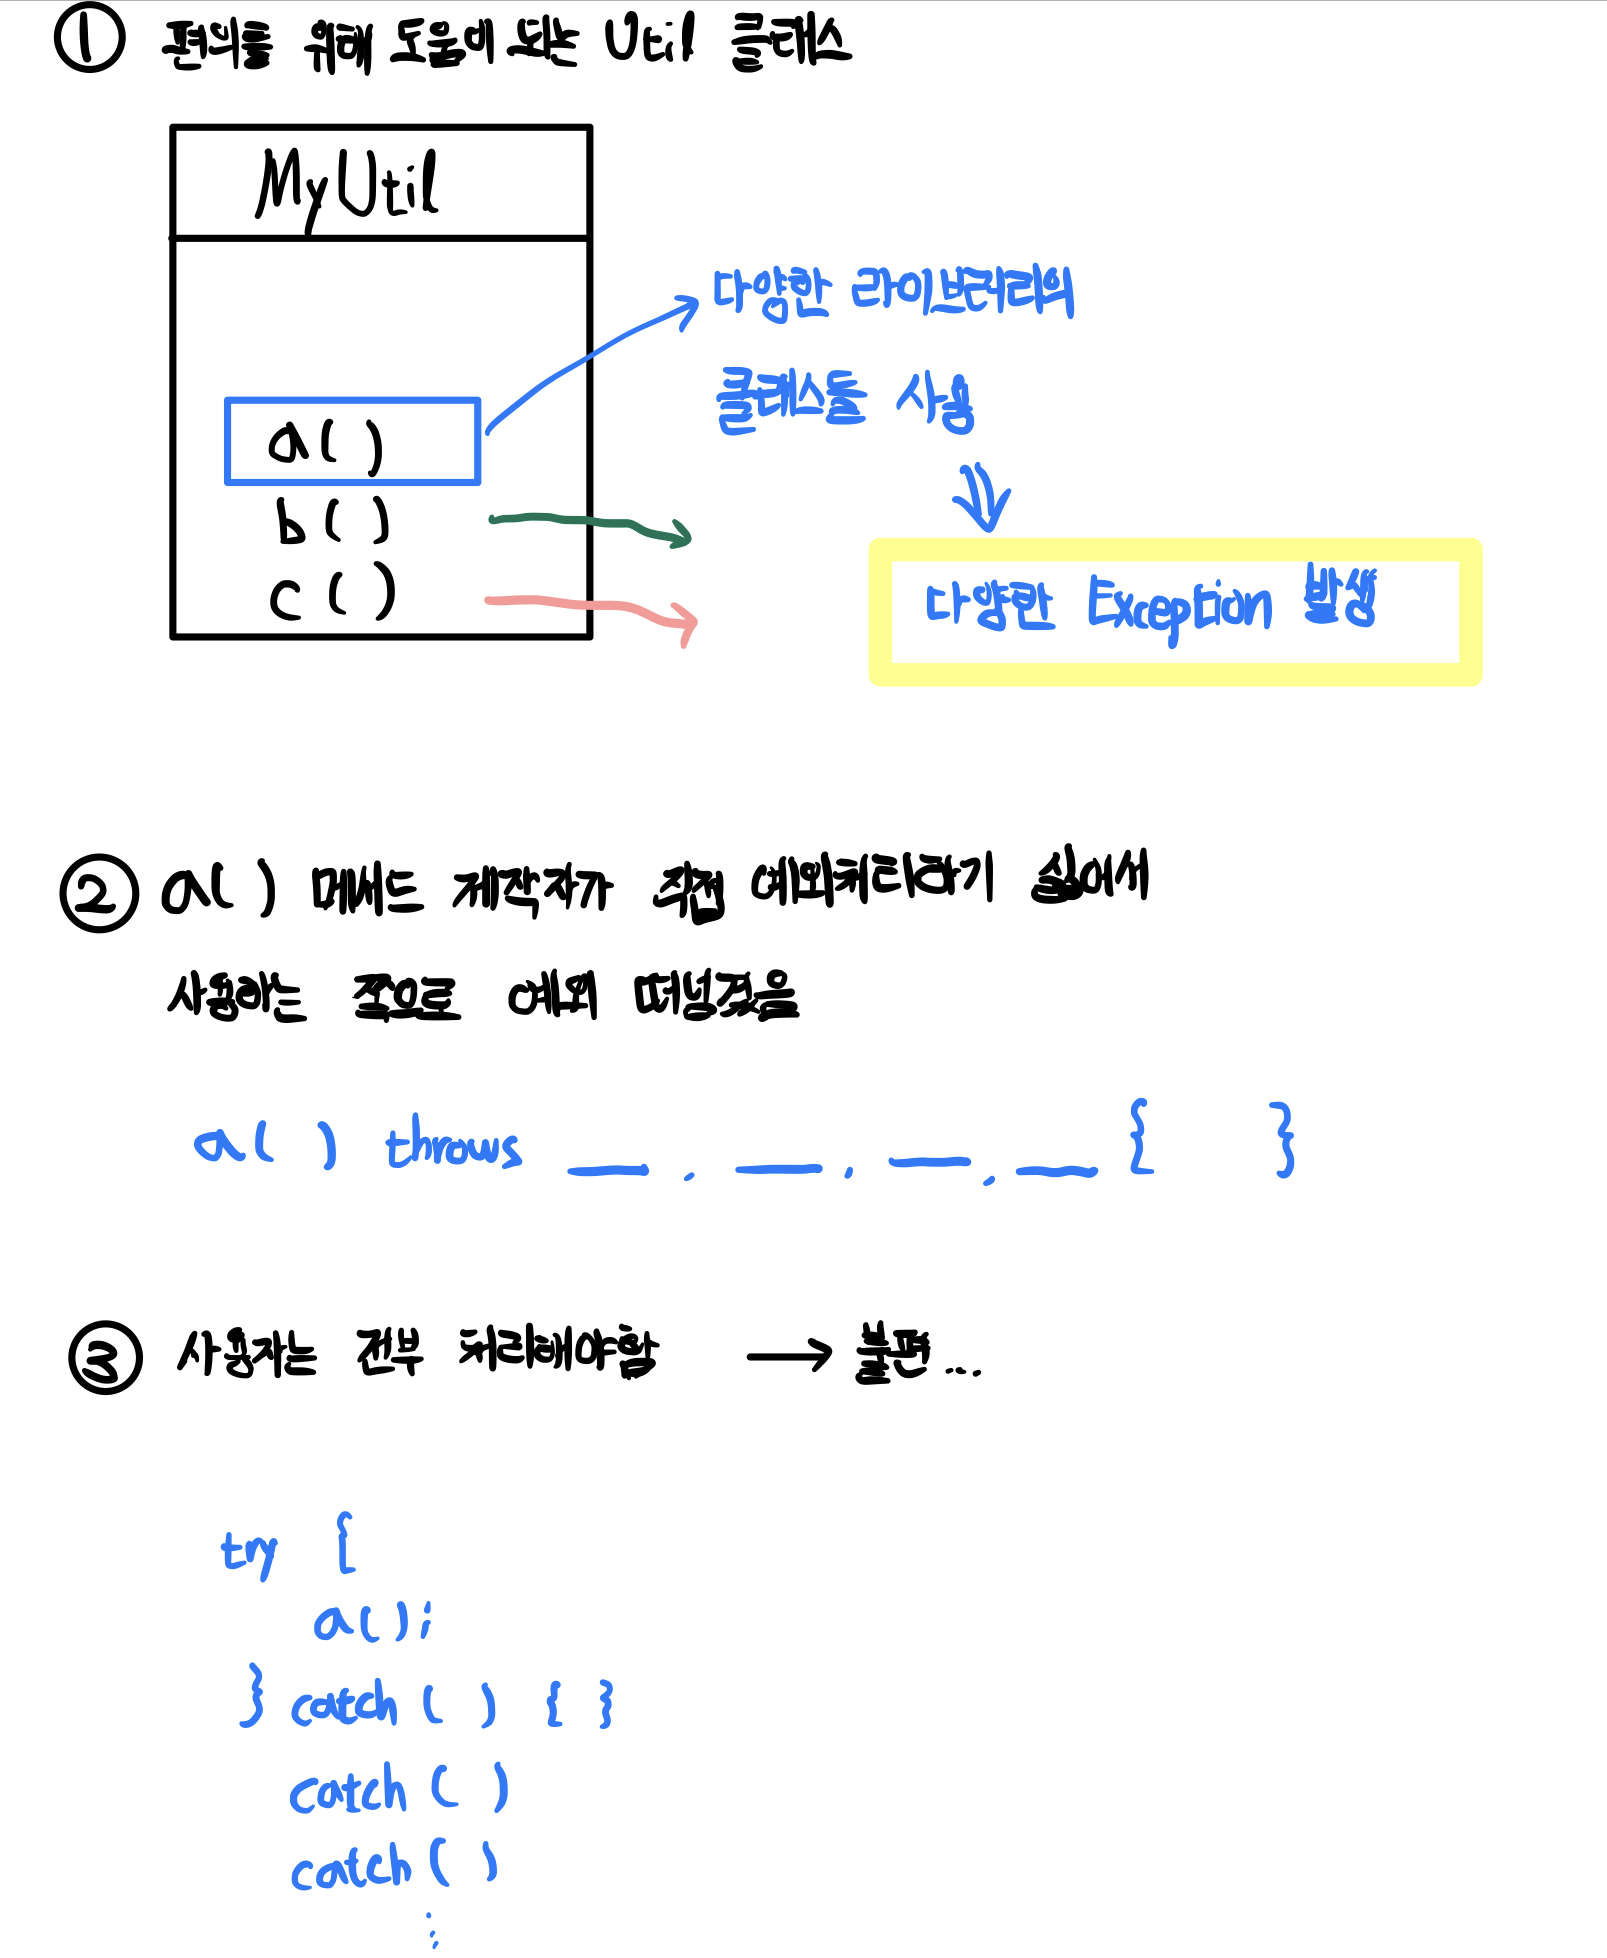 ① 편의를 위해 도움이 되는 Util 클래스
MyUtil
a( )
b( )
c( )
다양한 라이브러리의
클래스들 사용
다양한 Exception 발생
② a( ) 메써드 제작자가 직접 예외처리하기 싫어서
사용하는 쪽으로 예외 떠넘겼음
a( ) throws __ , __ , __ , __ { }
③ 사용자는 전부 처리해야함 → 불편...
try {
a( );
} catch ( ) { }
catch ( )
catch ( )
⋮